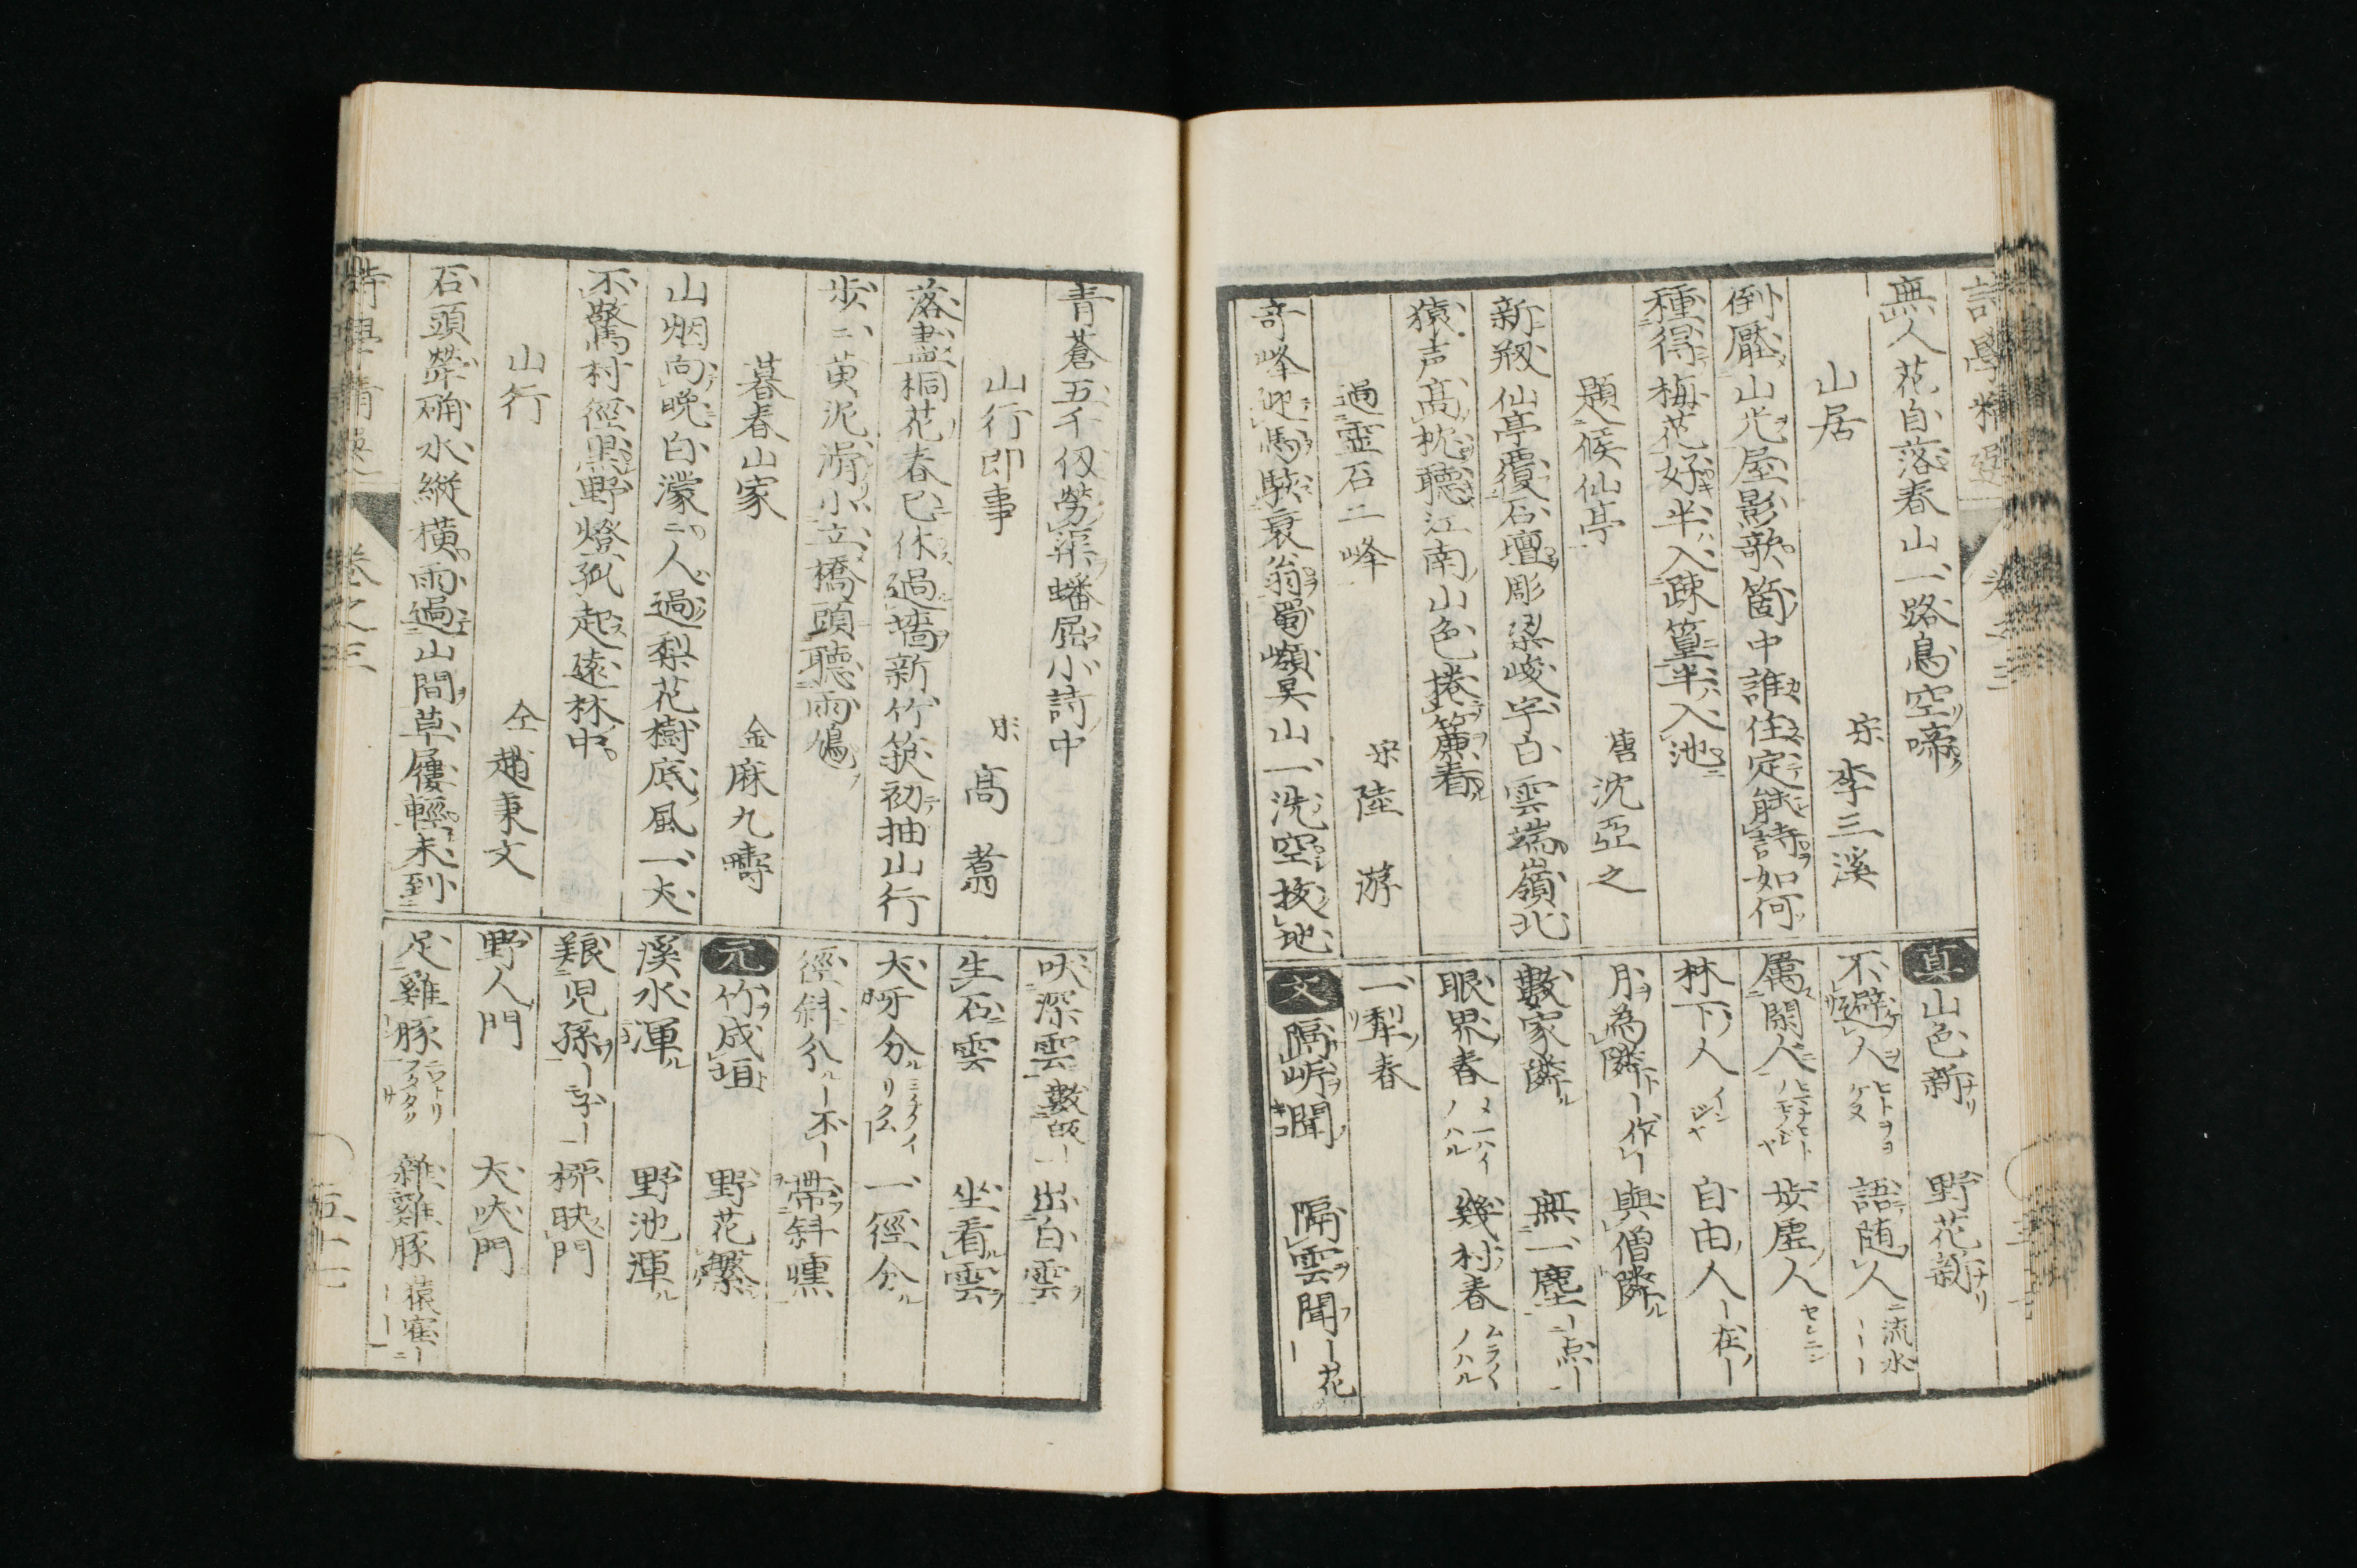 無人花自落春山一路鳥空啼
山居 宋 李三溪
倒壓山光屋影歌箇中誰住定能詩如何
種得梅花好半入疎篁半入池
題候仙亭 唐 沈亞之
新剏仙亭覆石壇彫梁峻宇白雲端嶺北
猿声高枕聽江南山色捲簾看
過霊石二峰 宋 陸游
奇峰迎馬駭衰翁蜀嶺呉山一洗空拔地
真 山色新ナリ 野花新ナリ
不避人ヲ ヒトヲヨケヌ 語随人ニ 流水
属閑人ニ 歩虚人 セレニン
林下人 インジヤ 自由人 在
月為隣ト 作 與僧隣ル
數家隣ル 無一塵 点
眼界春 メーハイノハル 幾村春 ムライクノハル
一犂春
文 隔岍聞 隔雲聞 花
青蒼五千仭勞渠蟠屈小詩中
山行即事 宋 高翥
落盡桐花春已休過墻新竹笋初抽山行
歩ニ黄泥滑小立橋頭聽雨鳩
暮春山家 金 麻九疇
山烟向晩白濛ニ人過梨花樹底風一犬
不驚村徑黒野燈孤起遠林中
山行 仝 趙秉文
石頭犖确水縦横雨過山間草屨輕未到
吠深雲 數聲 出白雲
生石雲 坐看雲
犬呀分 一徑分ル
徑斜分ル 不 帶斜曛
元 竹成垣 野花繁
溪水渾ル 野池渾ル
艱児孫 子 柳映門
野人門 犬吠門
足雞豚 ニワトリ 雜雞豚
詩學精選 巻之三 五十一